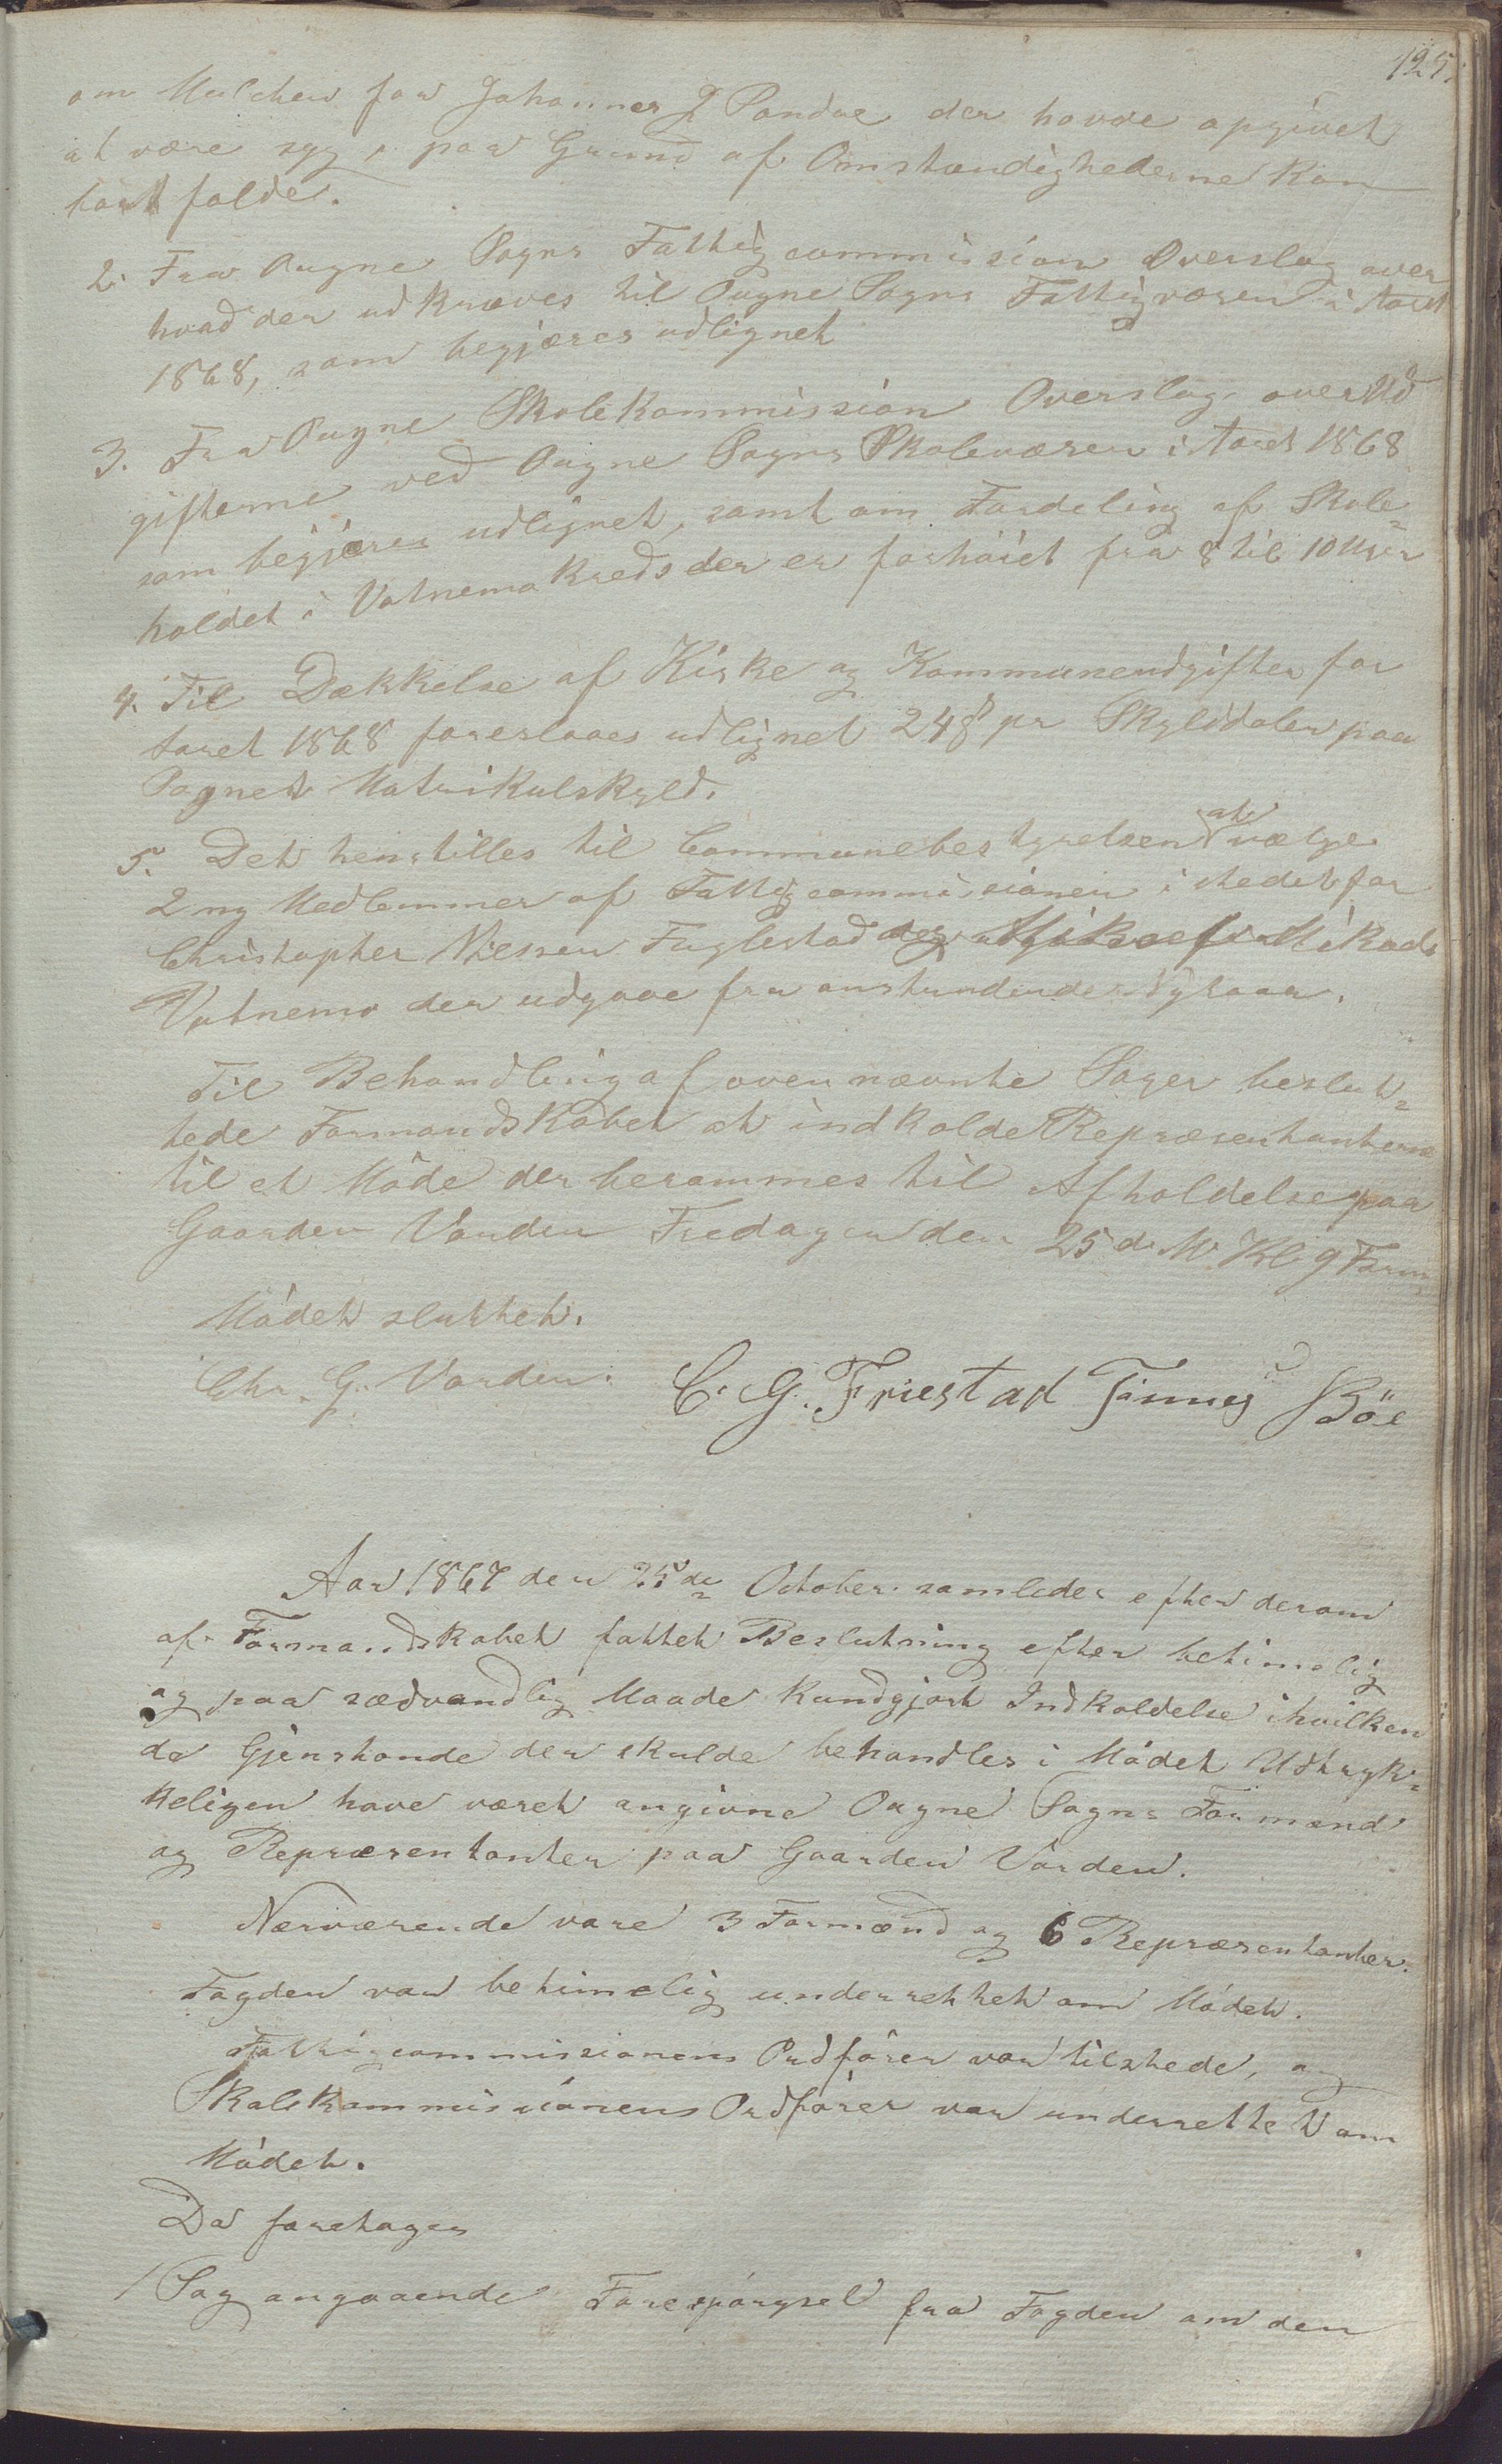 125.
om Mulcten for Johannes J Pandue der havde opgivet
at være syg, paa Grund af Omstændighederne kan
bortfalde.
2. Fra Ougne Sogns Fattigcommission Overslag over
hvad der udkræves til Ougne Sogns Fattigvæsen i Aaret
1868, som begjæres udlignet
3. Fra Ougne Skolekommission Overslag over Ud
gifterne ved Ougne Sogns Skolevæsen i Aaret 1868
som begjæres udlignet, samt om Fordeling af Skole-
holdet i Vatnemo Kreds der er forhøiet fra 8 til 10 Uger
4. Til Dækkelse af Kirke og Kommuneudgifter for
taret 1868 foreslaaes udlignet 24 ß pr Skylddaler paa
Sognets Matrikulskyld.
5. Det henstilles til Communebestyrelsen at vælge
2 ny Medlemmer af Fattigcommissionen i stedet for
Christopher Nielsen Fuglestad og
Vatnemo der udgaae fra anstundende Nytaar.
Til Behandling af ovennævnte Sager beslut-
tede Formandskabet at indkalde Repræsentanterne
til et Møde der berammes til Afholdelse paa
Gaarden Varden Fredagen den 25 d. M. Kl 9 Form
Mødet sluttet.
Chr. G. Varden. C. G. Friestad Tønnes Böe
Aar 1867 den 25de October samledes efter derom
af Formandskabet fattet Beslutning efter betimelig
og paa sædvandlig Maade kundgjort Indkaldelse i hvilken
de Gjenstande der skulde behandles i Mødet Udtryk-
keligen have været angivne Ougne Sogns Formænd
og Repræsentanter paa Gaarden Varden.
Nærværende vare 3 Formænd og 6 Repræsentanter.
Fogden var betimelig underrettet om Mødet.
Fattigcommissionens Ordfører var tilstede, og
Skolekommissionens Ordfører var underrettet om
Mødet.
Da foretages
1 Sag angaaende Forespørgsel fra Fogden om den